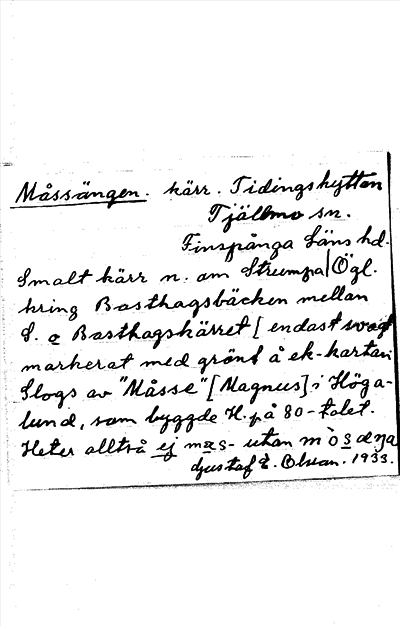 Måssängen. kärr. Tidingshyttan
Tjällmo sn.
Finspånga läns hd.
Smalt kärr n. om Strumpa Ögl.
kring Basthagsbäcken mellan
S. o Basthagskärret [endast svagt
markerat med grönt å ek-kartan
Slogs av "Måsse" [Magnus] i Höga-
lund, som byggde H. på 80-talet.
Heter alltså ej mas- utan
Gustaf E. Olsson. 1933.